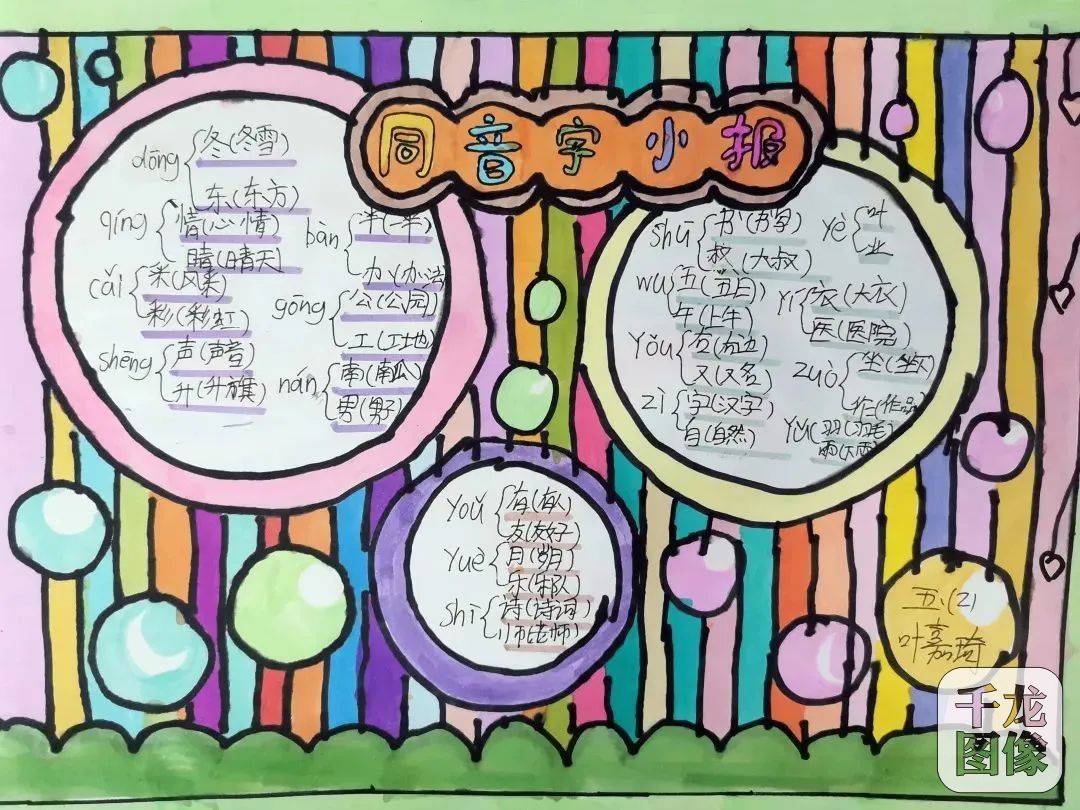 同音字小报
dōng
冬(冬雪)
东(东方)
qíng
情(心情)
晴(晴天)
cǎi
采(风采)
彩(彩虹)
shēng
声(声音)
升(升旗)
bàn
半(一半)
办(办法)
gōng
公(公园)
工(工地)
nán
南(南瓜)
男(男子)
shū
书(书写)
叔(大叔)
wǔ
五(五日)
午(上午)
Yòu
右(右边)
又(又名)
zì
字(汉字)
自(自然)
yè
叶
业
Yī
衣(大衣)
医(医院)
zuò
坐(坐下)
作(作品)
Yǔ
羽(羽毛)
雨(下雨)
Yoǔ
有(有人)
友(友好)
Yuè
月(岁月)
乐(乐队)
shī
诗(诗词)
师(老师)
五(2)
叶嘉琦
千龙
图像